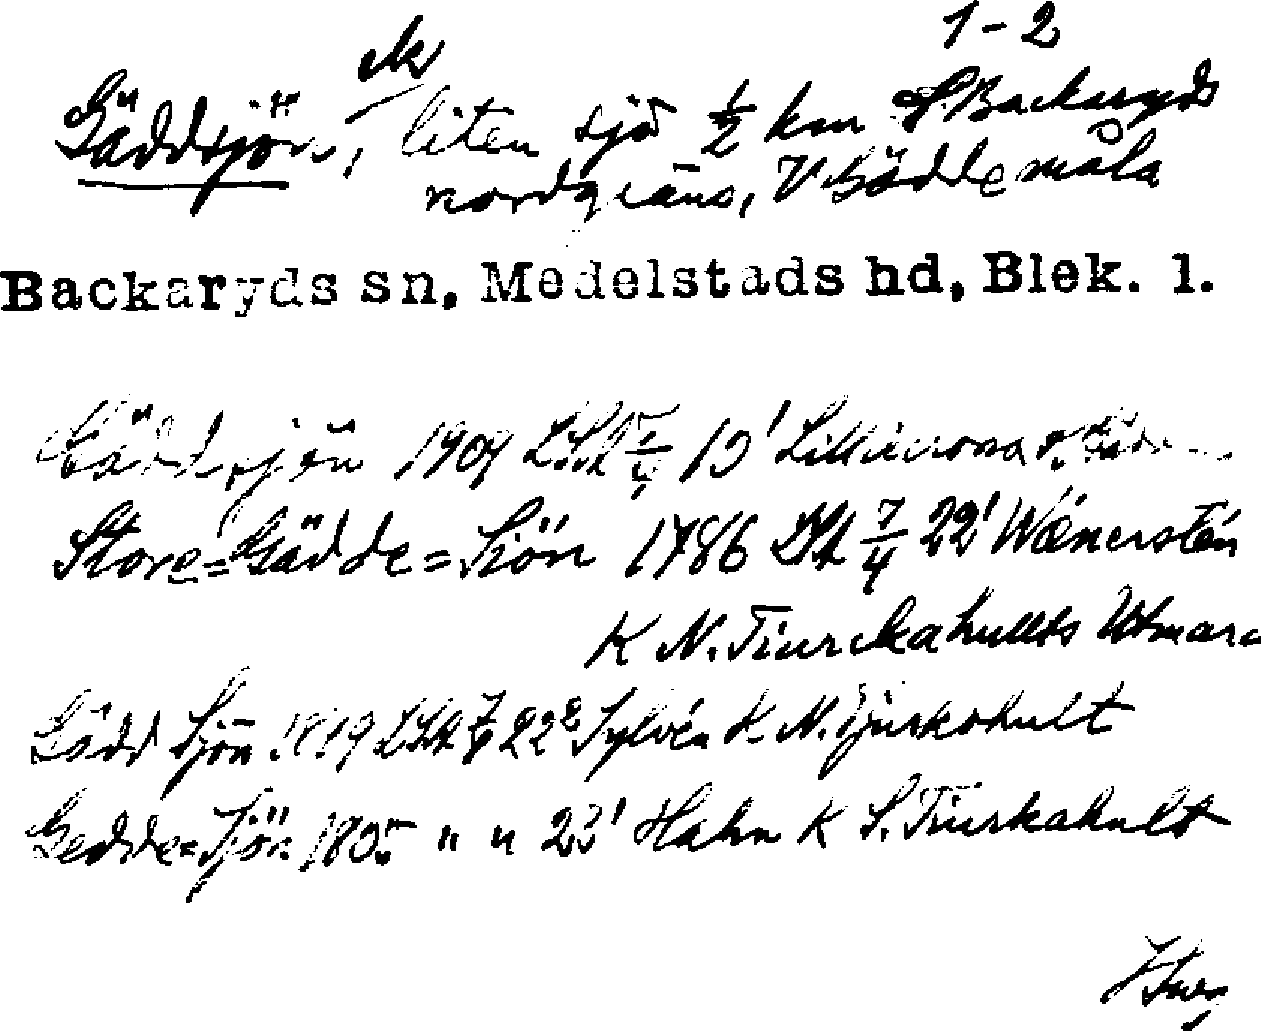 1-2
ek
Gäddsjön, liten sjö 1/2 km S Backaryds
nordgräns, V Gäddemåla
Backaryds sn, Medelstads hd, Blek. l.
Gäddsjön 1909 LSA 13' Lilliecrona
Store=Gädde=Siön 1786 LSA 7/4 22' Wänerstén
K N. Tiurckahullts Utmar=
Gädd Sjön 1819 LSA 7/4 22² Sylvén K N. Tjurkohult
Gedde=Sjön 1805 " " 23' Hahn K S. Tiurkahult